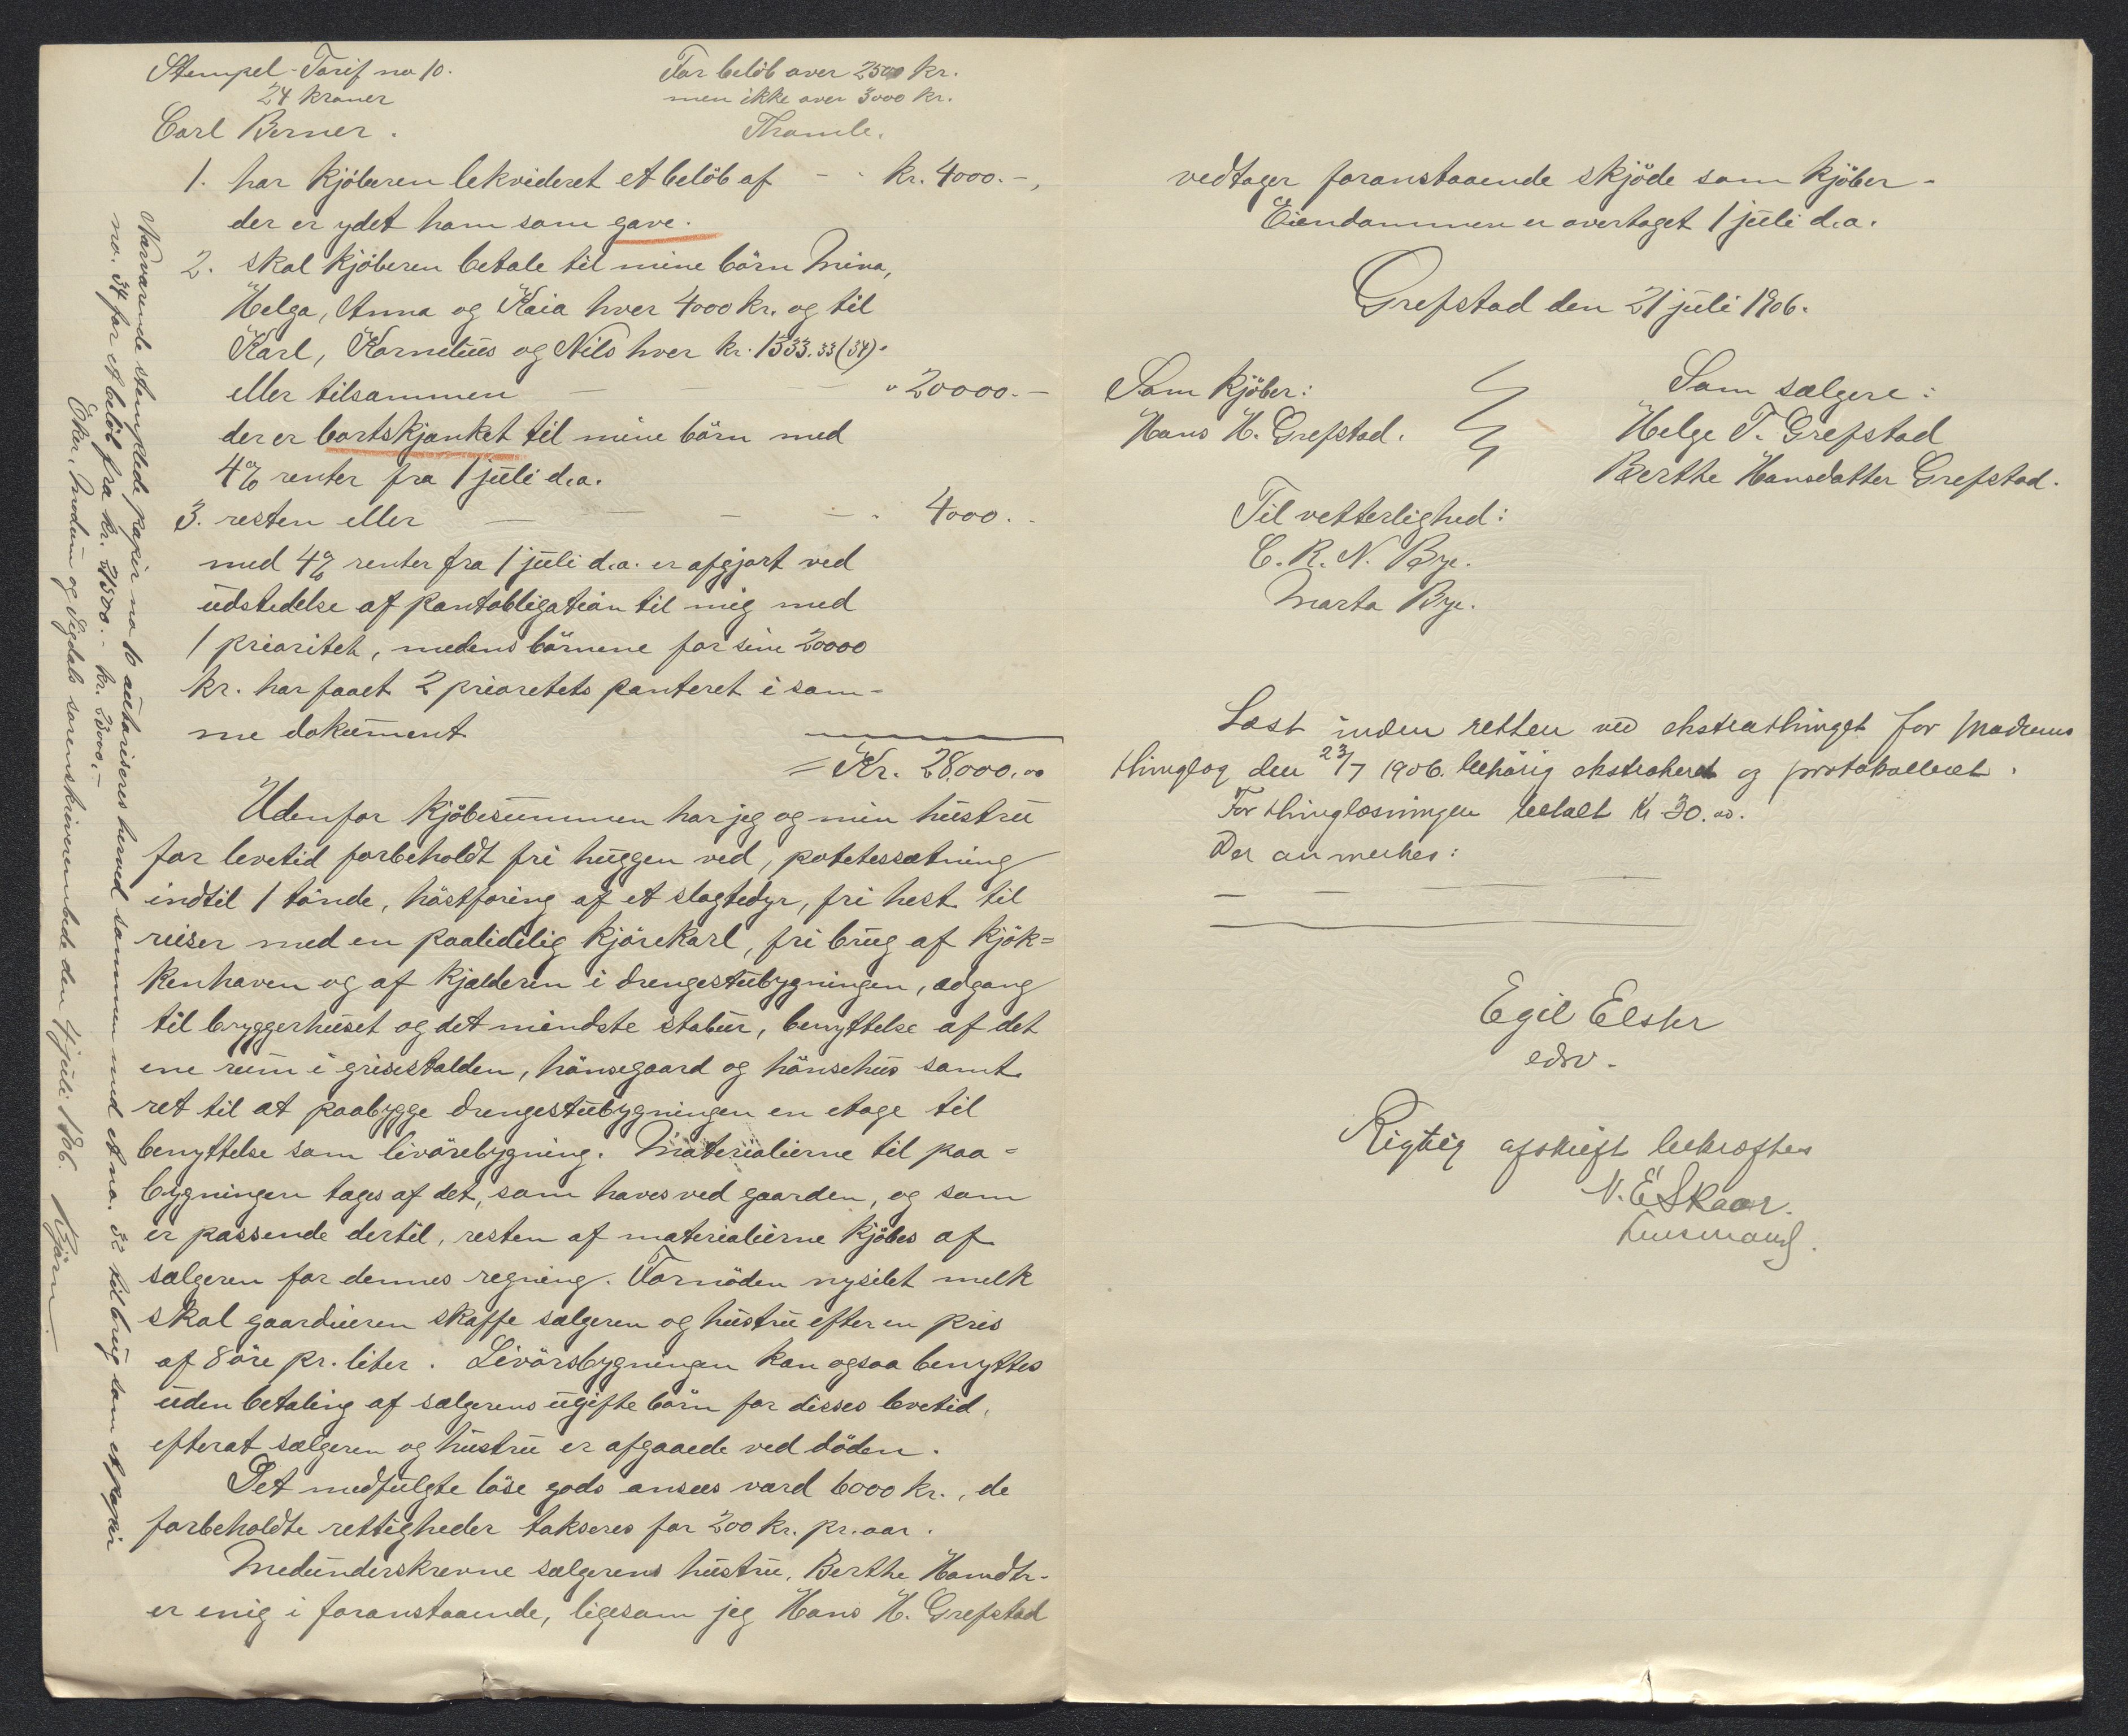 Stempel-Tarif no 10.
24 kroner
Carl Berner.
For belöb over 2500 kr.
men ikke over 3000 kr.
Thomle.
1. har kjöberen lekvideret et belöb af - - kr. 4000.-,
der er ydet ham som gave.
2. skal kjöberen betale til mine börn Mina,
Helga, Anna og Kaia hver 4000 kr. og til
Karl, Kornelius og Nils hver kr. 1333.33(34).
eller tilsammen - - - " 20000.-
der er bortskjænket til mine börn med
4% renter fra 1 juli d.a.
3. resten eller - - - - " 4000. -
med 4% renter fra 1 juli d.a. er afgjort ved
udstedelse af pantobligation til mig med
1 prioritet, medens börnene for sine 20000
kr. har faaet 2 prioretets panteret i sam-
me dokument
= Kr. 28,000.00
Udenfor kjöbesummen har jeg og min hustru
for levetid forbeholdt fri huggen ved, potetessætning
indtil 1 tönde, höstforing af et slagtedyr, fri hest til
reiser med en paalidelig kjörekarl, fri brug af kjök=
kenhaven og af kjælderen i drengestubygningen, adgang
til bryggerhuset og det mindste stabur, benyttelse af det
ene rum i grisestalden, hönsegaard og hönsehus samt
ret til at paabygge drengestubygningen en etage til
benyttelse som livörebygning. Materialierne til paa=
bygningen tages af det, som haves ved gaarden, og som
er passende dertil, resten af materialierne kjöbes af
sælgeren for dennes regning. Fornöden nysilet melk
skal gaardeieren skaffe sælgeren og hustru efter en pris
af 8 öre pr. liter. Livörsbygningen kan ogsaa benyttes
uden betaling af sælgerens ugifte börn for disses levetid,
efterat sælgeren og hustru er afgaaede ved döden.
Det medfulgte löse gods ansees værd 6000 kr., de
forbeholdte rettigheder takseres for 200 kr. pr. aar.
Medunderskrevne sælgerens hustru, Berthe Hansdtr.
er enig i foranstaaende, ligesom jeg Hans H. Grefstad
Nærværende stemplede papir no 10 autoriseres herved sammen med et no. 32 til brug som et papir
no. 34 for et belöb fra kr. 27500.- kr. 28000.-
Eker, Modum og Sigdals sorenskriverembede den 4 juli 1906. Kjörn.
vedtager foranstaaende skjöde som kjöber -
Eiendommen er overtaget 1 juli d.a.
Grefstad den 21 juli 1906.
Som kjöber:
Hans H. Grefstad.
Som sælgere:
Helge T. Grefstad
Berthe Hansdatter Grefstad.
Til vetterlighed:
C. R. N. Bye.
Marta Bye.
Læst inden retten ved ekstrathinget for Modums
thinglag den 23/7 1906. behörig ekstraheret og protokolleret.
For thinglæsningen betalt Kr 30.00.
Der anmerkes:
Egil Elster
edsv.
Rigtig afskrift bekræftes
N. E Skaar.
Lensmand.